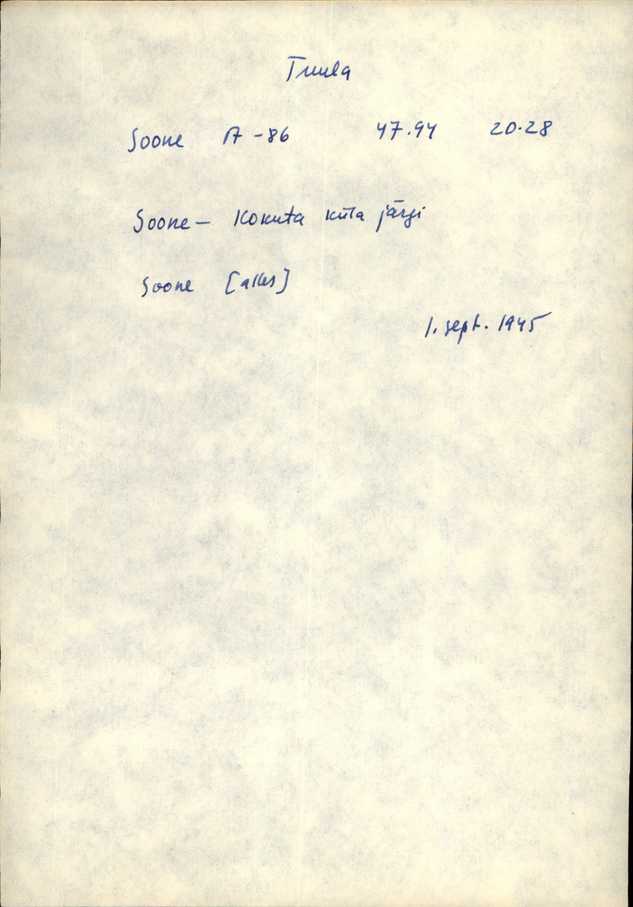 Truula
Soone A-86 47.94 20.28
Soone – Kokuta küla järgi
Soone [alles]
1. sept. 1945